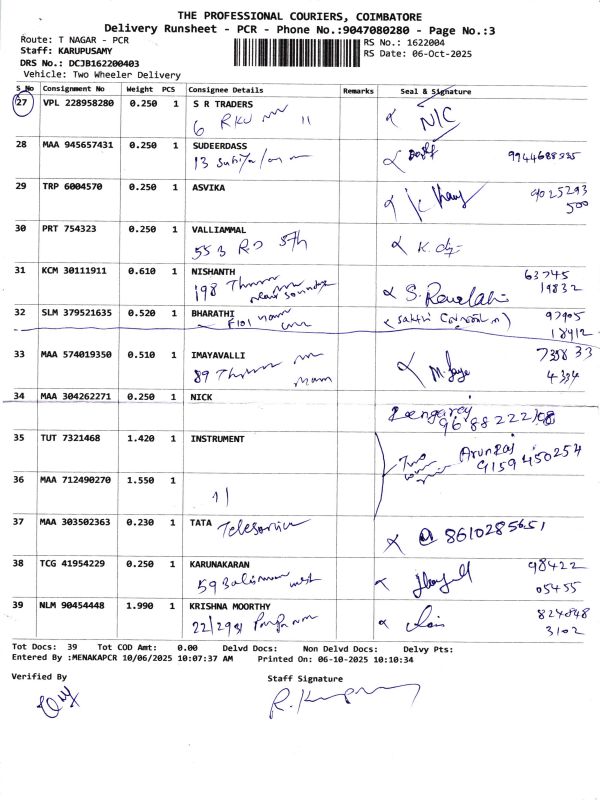 THE PROFESSIONAL COURIERS, COIMBATORE
Delivery Runsheet - PCR - Phone No.:9047080280 - Page No.:3
Route: T NAGAR - PCR
Staff: KARUPUSAMY
DRS No.: DCJB162200403
Vehicle: Two Wheeler Delivery
RS No.: 1622004
RS Date: 06-Oct-2025
S No Consignment No Weight PCS Consignee Details Remarks Seal & Signature
27 VPL 228958280 0.250 1 S R TRADERS
6 N/C
28 MAA 945657431 0.250 1 SUDEERDASS
13
29 TRP 6004570 0.250 1 ASVIKA
9025293
500
30 PRT 754323 0.250 1 VALLIAMMAL
31 KCM 30111911 0.610 1 NISHANTH
198 63745
19832
32 SLM 379521635 0.520 1 BHARATHI
F101 97905
18912
33 MAA 574019350 0.510 1 IMAYAVALLI
89
34 MAA 304262271 0.250 1 NICK
35 TUT 7321468 1.420 1 INSTRUMENT
Two Arunraj
9159450254
36 MAA 712490270 1.550 1
11
37 MAA 303502363 0.230 1 TATA Teleservice
8610285651
38 TCG 41954229 0.250 1 KARUNAKARAN
59 west 98422
05455
39 NLM 90454448 1.990 1 KRISHNA MOORTHY
22/29
3102
Tot Docs: 39 Tot COD Amt: 0.00 Delvd Docs: Non Delvd Docs: Delvy Pts:
Entered By :MENAKAPCR 10/06/2025 10:07:37 AM Printed On: 06-10-2025 10:10:34
Verified By Staff Signature